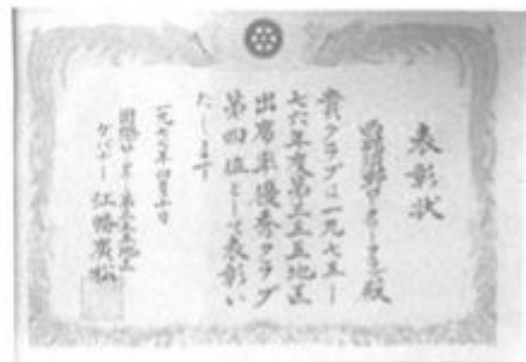 表彰状
ロータリークラブ殿
貴クラブは一九七五ー
七六年度第三五五地区
出席率優秀クラブ
第四位として表彰い
たします
一九七六年四月
国際ロータリー第三五五地区
ガバナー 江勝